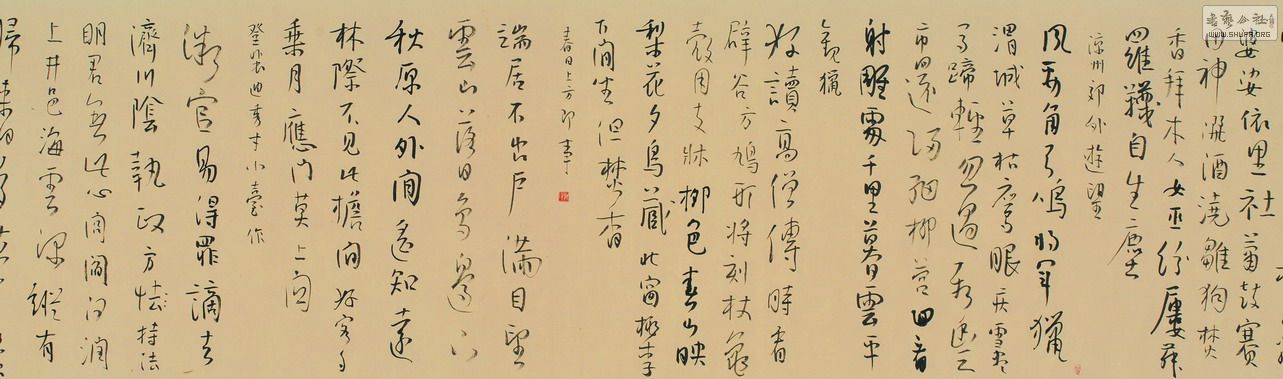 婆娑依里社簫鼓賽
田神灑酒澆雛狗焚
香拜木人女巫紛屢舞
羅襪自生塵
涼州郊外遊望
風勁角弓鳴將軍獵
渭城草枯鷹眼疾雪盡
馬蹄輕忽過新豐
市還歸細柳營回看
射雕處千里暮雲平
觀獵
好讀高僧傳時看
辟谷方鳩形將刻杖龜
殼用支牀柳色春山映
梨花夕鳥藏北窗桃李
下閒坐但焚香
春日上方即事
端居不出戶滿目望
雲山落日鳥邊下
秋原人外閒遙知遠
林際不見此檐間好客多
乘月應門莫上關
登裴迪秀才小臺作
微官易得罪謫去
濟川陰執政方持法
明君無此心閭閻河潤
上井邑海雲深縱有
歸來日
書藝公社
WWW.SHUFA.ORG